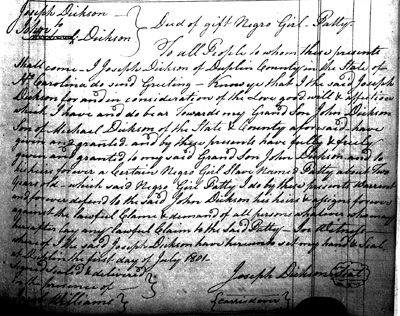 Joseph Dickson
to
Dickson } Deed of gift Negro Girl - Patty -
To all People to whom these presents
Shall come - I Joseph Dickson of Duplin County in the State of
No. Carolina do send Greeting - Know ye that I the said Joseph
Dickson for and in consideration of the Love good will & affection
which I have and do bear towards my Grand Son John Dickson
Son of Michael Dickson of the State & County aforesaid have
given and granted and by these presents have fully & freely
given and granted to my said Grand Son John Dickson and to
his heirs forever a Certain Negro Girl Slave Named Patty about Two
years old which said Negro Girl Patty I do by these presents Warrant
and forever defend to the said John Dickson his heirs & assigns forever
against the lawful Claim & demand of all persons whatever who may
hereafter lay any lawful Claim to the said Patty - In Witness
whereof I the said Joseph Dickson have hereunto set my hand & Seal
at Duplin the first day of July 1801 -
Signed Seal'd & delivered
in the presence of
Williams
Joseph Dickson Seal